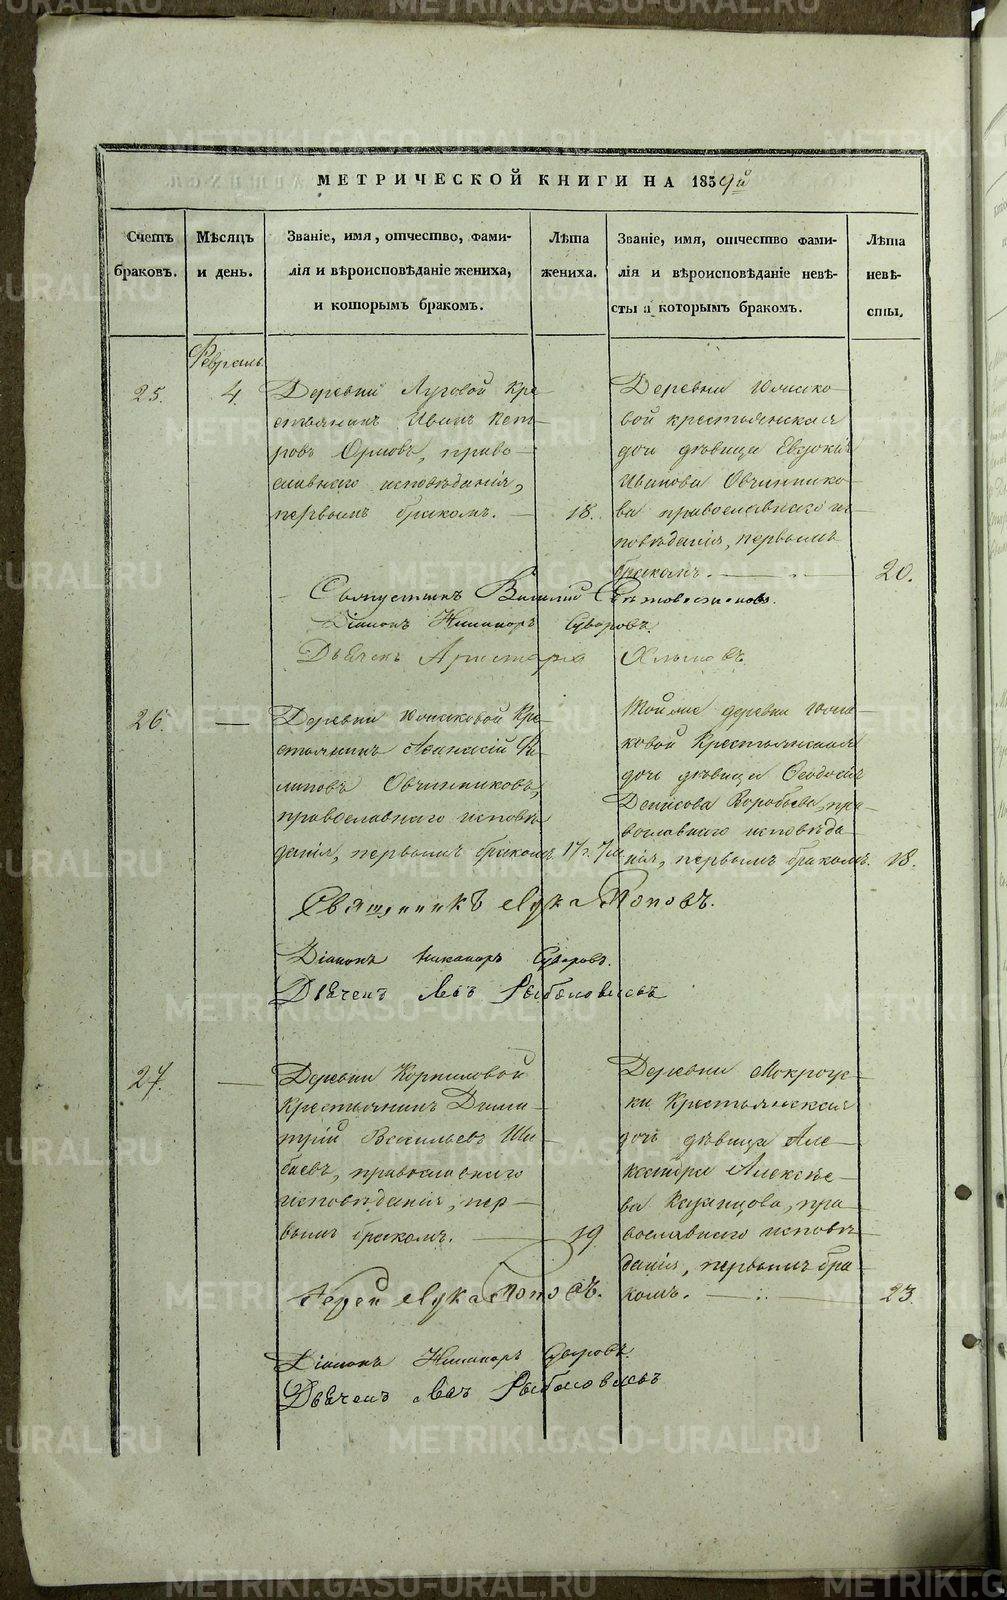 МЕТРИЧЕСКОЙ КНИГИ НА 1859й
Счетъ браковъ.
Мѣсяцъ и день.
Званіе, имя, отчество, фами-
лія и вѣроисповѣданіе жениха,
и которымъ бракомъ.
Лѣта жениха.
Званіе, имя, отчество фами-
лія и вѣроисповѣданіе невѣ-
сты и которымъ бракомъ.
Лѣта невѣ-
сты.
Февраль
25.
4.
Деревни Луговой кре-
стьянинъ Иванъ Пет-
ровъ Орловъ, право-
славнаго исповѣданія,
первымъ бракомъ.
18.
Деревни Юшко-
вой крестьянская
дочь дѣвица Евдокія
Иванова Овчиннико-
ва православнаго ис-
повѣданія, первымъ
бракомъ.
20.
Василій
Діаконъ Никаноръ Суворовъ.
Дьячекъ Аристархъ
26.
Деревни Юшковой кре-
стьянинъ Афанасій Фи-
липовъ Овчинниковъ,
православнаго исповѣ
данія, первымъ бракомъ
Той же деревни Юш-
ковой крестьянская
дочь дѣвица Ѳеодосія
Денисова Воробьева, пра-
вославнаго исповѣда-
нія, первымъ бракомъ.
18.
Священникъ Лука Поповъ.
Діаконъ Никаноръ Суворовъ.
Дьячекъ Левъ
27.
Деревни Корниловой
Крестьянинъ Дими-
трій Васильевъ Ши-
баевъ, православнаго
исповѣданія, пер-
вымъ бракомъ.
19.
Деревни Мокроус-
ки Крестьянская
дочь дѣвица Але-
ксандра Алексѣе-
ва Казанцова, пра-
вославнаго исповѣ
данія, первымъ бра-
комъ.
23.
Іерей Лука Поповъ.
Діаконъ Никаноръ Суворовъ.
Дьячекъ Левъ
METRIKI.GASO-URAL.RU